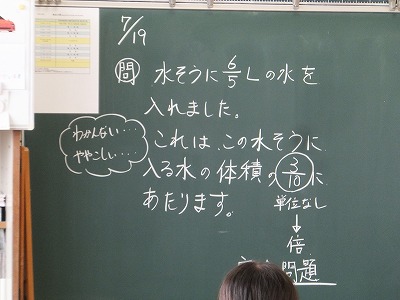 7/19
問 水そうに6/5Lの水を
入れました。
これは、この水そうに
入る水の体積の3/10に
あたります。
わかんない・・・
ややこしい・・・
単位なし
↓
倍
問題